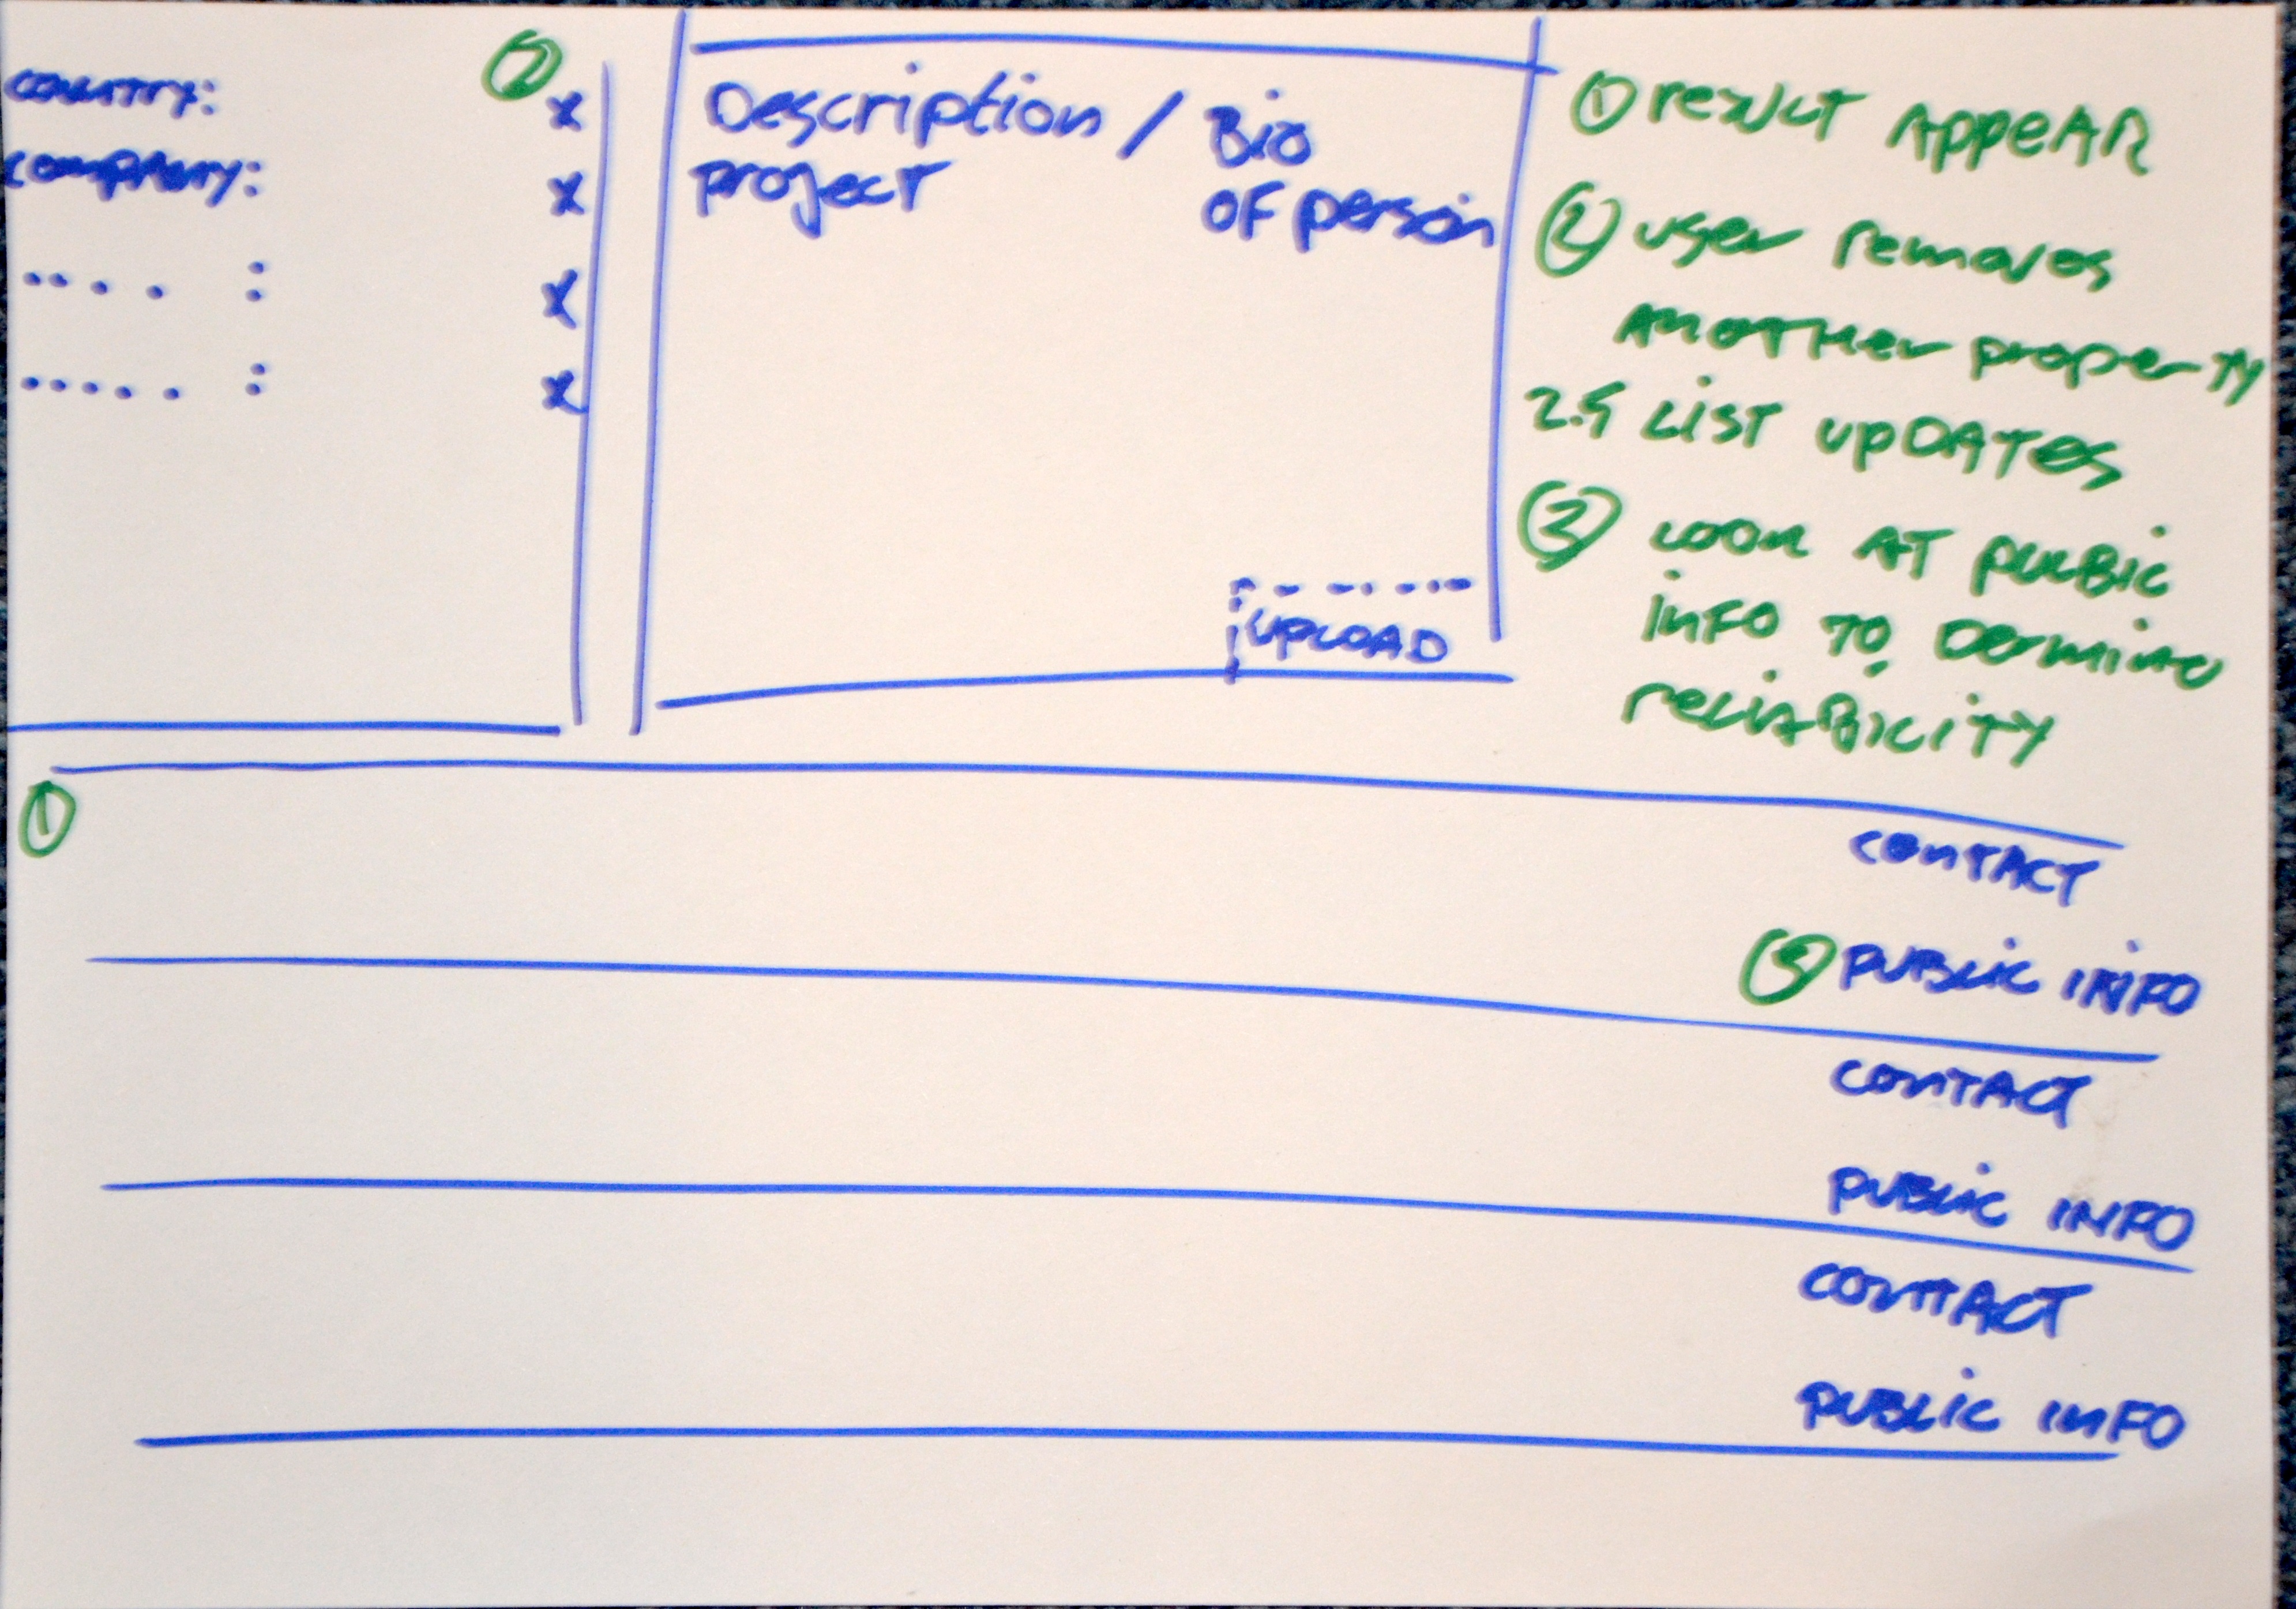 COUNTRY:
COMPANY:
.... :
..... :
2
x
x
x
x
Description / Bio
project of person
UPLOAD
1 result Appear
2 user removes
another property
2.5 List updates
3 Look at public
info to Dermine
reliability
1
CONTACT
3 PUBLIC INFO
CONTACT
PUBLIC INFO
CONTACT
PUBLIC INFO